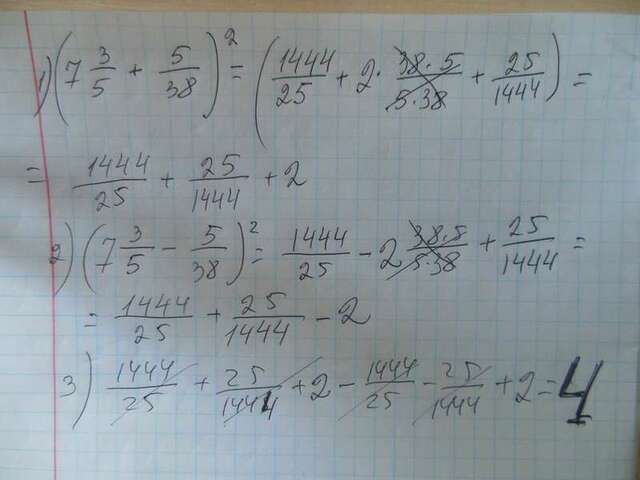 1) (7 3/5 + 5/38)² = (1444/25 + 2· 38·5/5·38 + 25/1444) =
= 1444/25 + 25/1444 + 2
2) (7 3/5 − 5/38)² = 1444/25 − 2 38·5/5·38 + 25/1444 =
= 1444/25 + 25/1444 − 2
3) 1444/25 + 25/1444 + 2 − 1444/25 − 25/1444 + 2 = 4